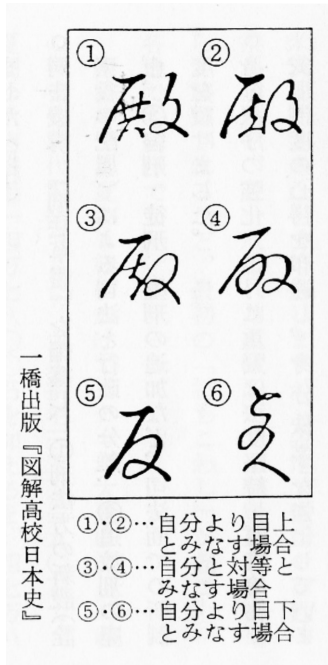 ① 殿
② 殿
③ 殿
④ 殿
⑤ 殿
⑥ とのへ
①・②…自分より目上
とみなす場合
③・④…自分と対等と
みなす場合
⑤・⑥…自分より目下
とみなす場合
一橋出版『図解高校日本史』